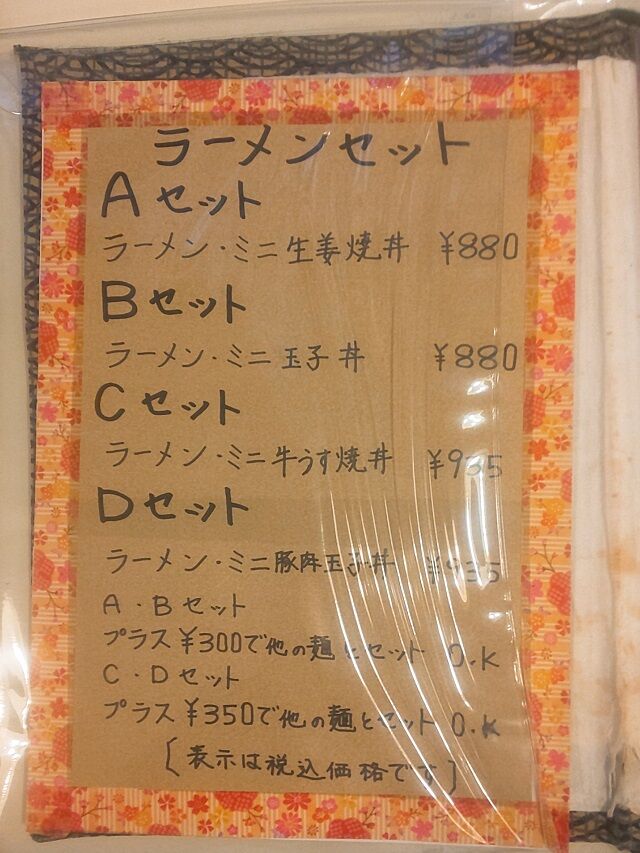 ラーメンセット
Aセット
ラーメン・ミニ生姜焼丼 ¥880
Bセット
ラーメン・ミニ玉子丼 ¥880
Cセット
ラーメン・ミニ牛うす焼丼 ¥935
Dセット
ラーメン・ミニ豚肉玉子丼 ¥935
A・Bセット
プラス¥300で他の麺とセット O.K
C・Dセット
プラス¥350で他の麺とセット O.K
〔表示は税込価格です〕